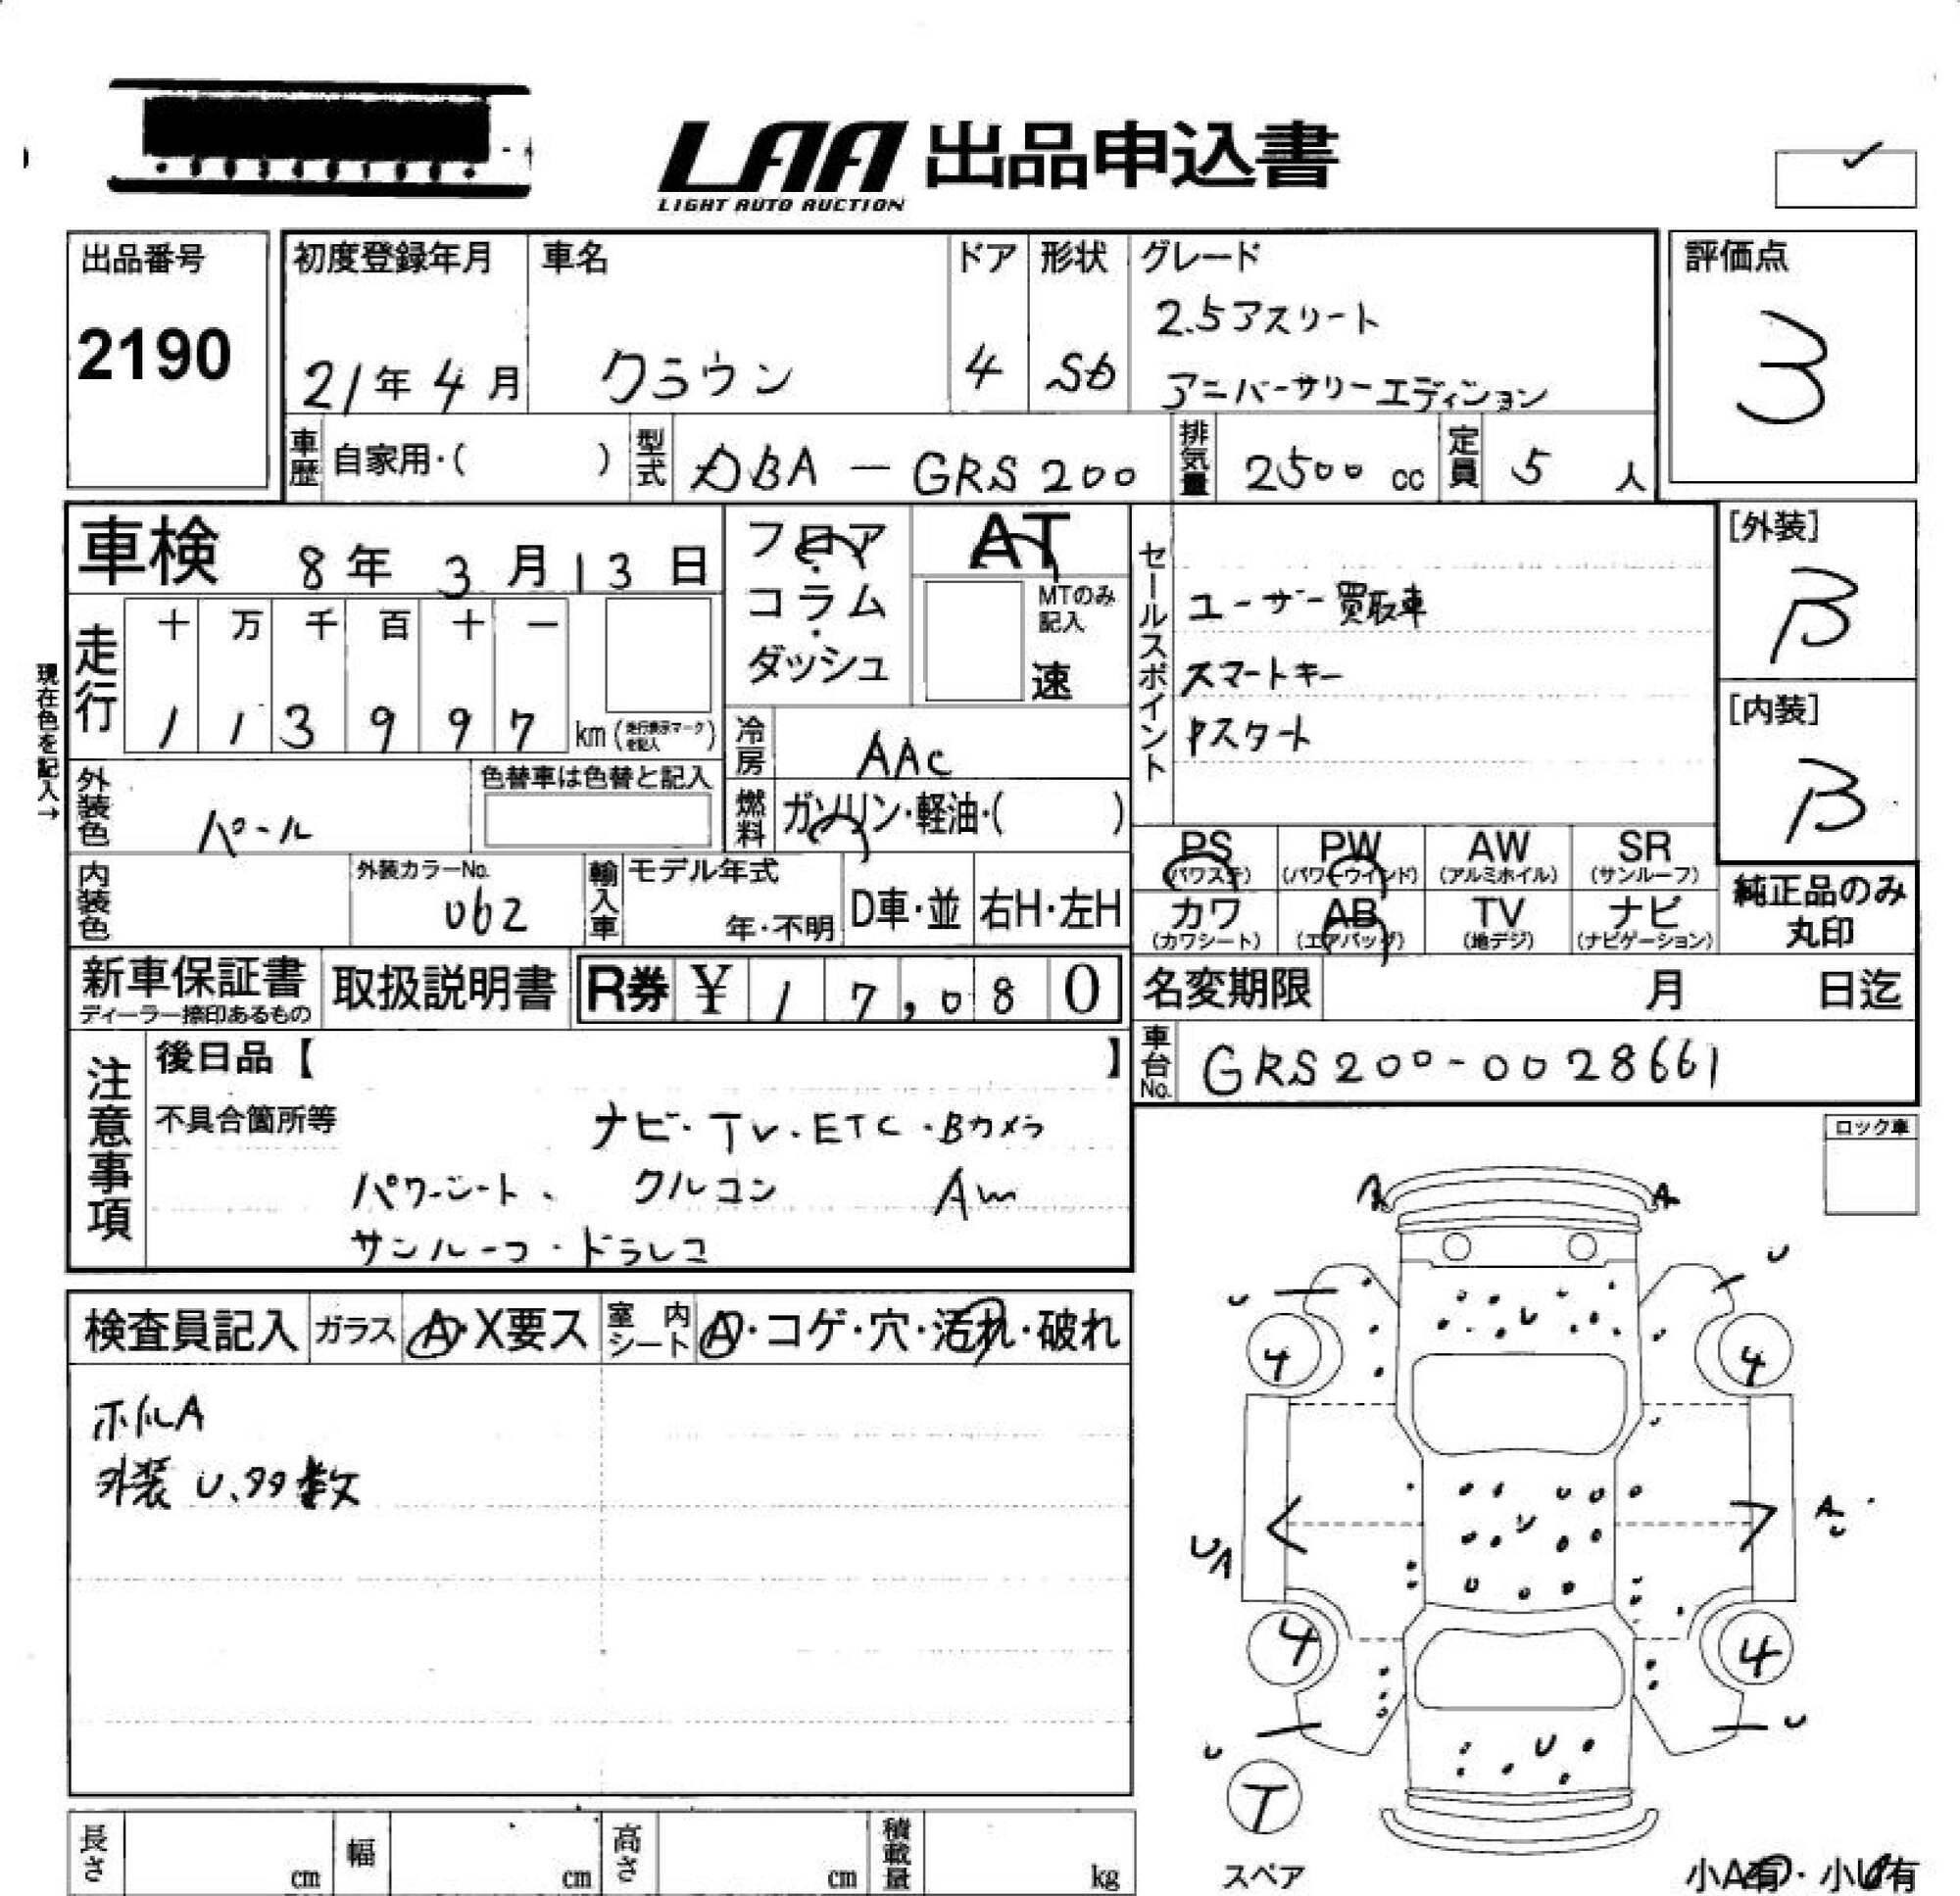 LAA 出品申込書
LIGHT AUTO AUCTION
出品番号
2190
初度登録年月
21年 4月
車名
クラウン
ドア
4
形状
Sb
グレード
2.5アスリート
アニバーサリーエディション
評価点
3
車歴
自家用・( )
型式
DBA-GRS200
排気量
2500 cc
定員
5 人
車検 8年 3月13日
フロア・コラム・ダッシュ
AT
MTのみ記入
速
セールスポイント
ユーザー買取車
スマートキー
Pスタート
[外装]
B
[内装]
B
現在色を記入→
走行
十 万 千 百 十 一
1 1 3 9 9 7 km (走行表示マークを記入)
冷房
AAC
外装色
パール
色替車は色替と記入
燃料
ガソリン・軽油・( )
PS (パワステ)
PW (パワーウインド)
AW (アルミホイル)
SR (サンルーフ)
カワ (カワシート)
AB (エアバッグ)
TV (地デジ)
ナビ (ナビゲーション)
純正品のみ丸印
内装色
外装カラーNo.
062
輸入車
モデル年式
年・不明
D車・並
右H・左H
新車保証書
ディーラー捺印あるもの
取扱説明書
R券 ¥ 17,080
名変期限 月 日迄
車台No.
GRS200-0028661
注意事項
後日品【 】
不具合箇所等
ナビ・TV・ETC・Bカメラ
パワーシート、クルコン AW
サンルーフ・ドラレコ
ロック車
検査員記入
ガラス
A・X要ス
室内シート
A・コゲ・穴・汚れ・破れ
ホイルA
外装U、タタ数
A
U
U
4
4
U
UA
A
U
4
4
U
U
U
U
T
スペア
小A有・小U有
長さ cm
幅 cm
高さ cm
積載量 kg